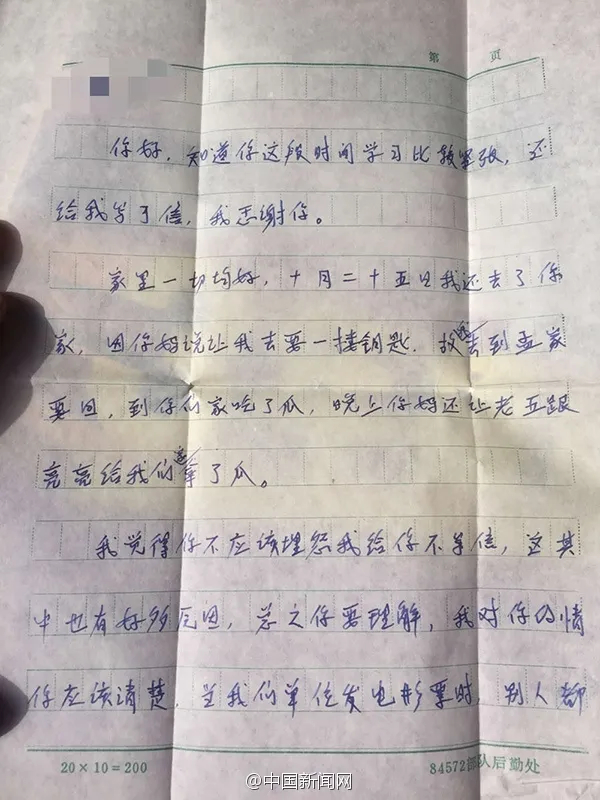 第 页
你好，知道你这段时间学习比较紧张，还
给我写了信，我感谢你。
家里一切均好，十月二十五日我还去了你
家，因你妈说让我去要一接钥匙，故去到孟家
要回，到你们家吃了瓜，晚上你妈还让老五跟
亮亮给我们送拿了瓜。
我觉得你不应该埋怨我给你不写信，这其
中也有好多原因，总之你要理解，我对你的情
你应该清楚，当我们单位发电影票时，别人都
20×10=200 84572部队后勤处
@中国新闻网